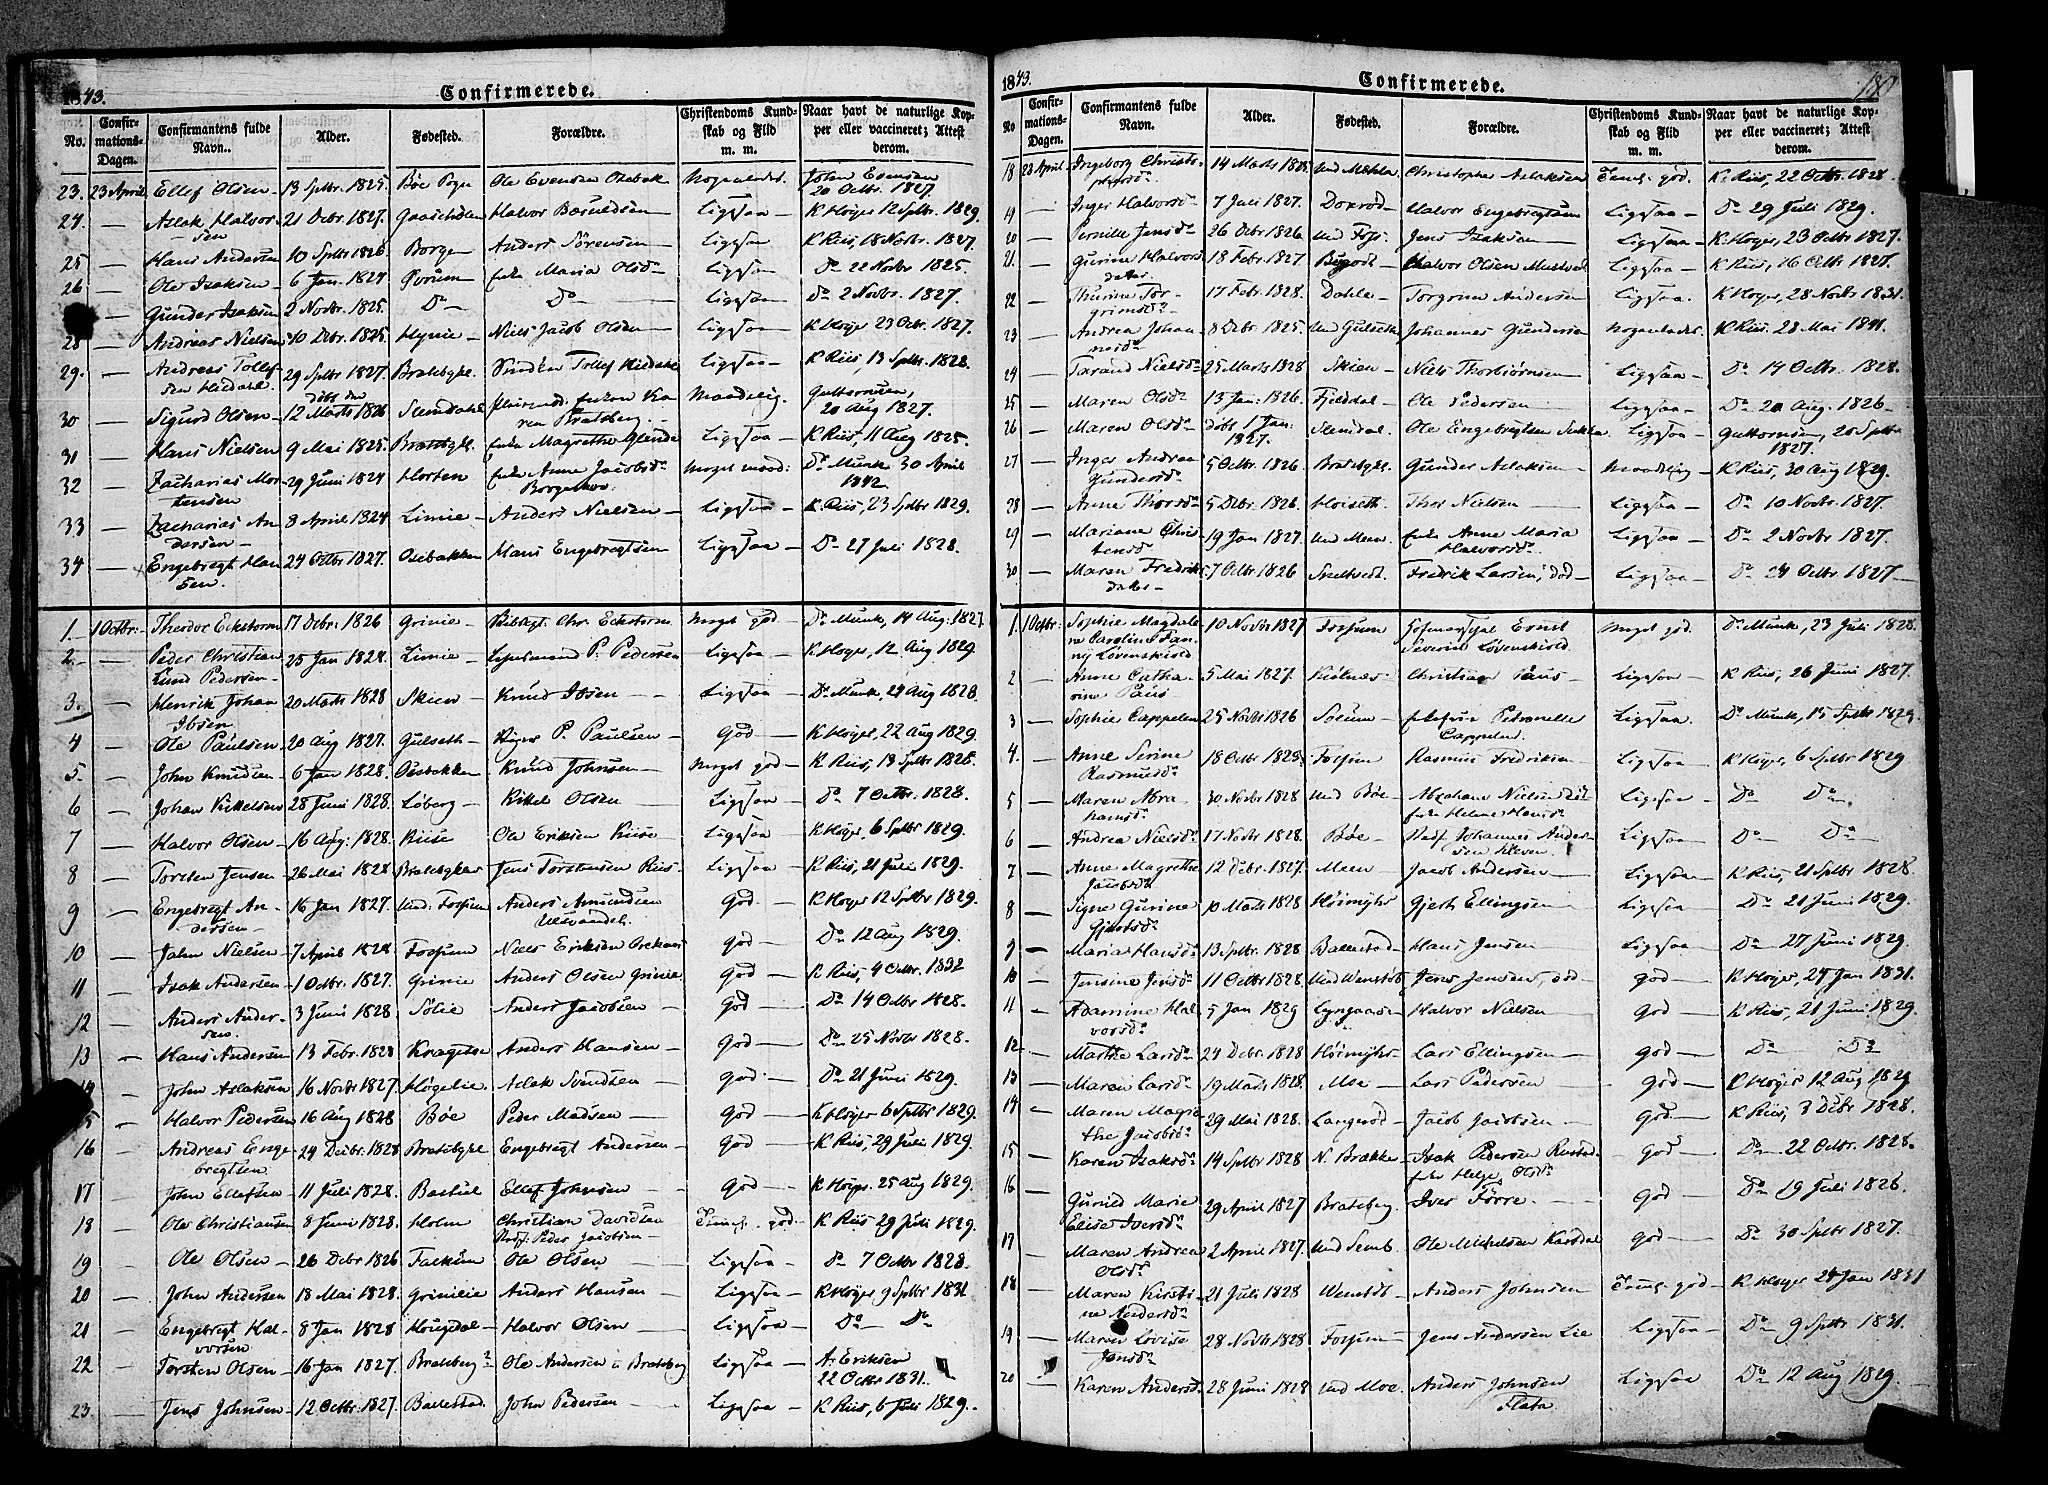 1843.
Confirmerede.
No.
Confir-
mations-
Dagen.
Confirmantens fulde
Navn.
Alder.
Fødested.
Forældre.
Christendoms Kund-
skab og Flid
m. m.
Naar havt de naturlige Kop-
per eller vaccineret; Attest
derom.
23. 23 April Ellef Olsen 13 Sptbr. 1825 Bøe Ole Evensen Osebak Nogenledes. John Evensen
20 Octbr. 1827
24. — Aslak Halvor- 21 Decbr. 1827. Halvor Ligesaa K Høyer 12 Sptbr. 1829.
sen
25 — Hans Andersen 10 Sptbr 1826 Borge Anders Sørensen Ligesaa K Riis, 18 Novbr. 1827.
26 — Ole Isaksen 6 Jan. 1824 Gørum Maria Olsd. Ligesaa Do 22 Novbr 1825.
— Gunder Isaksen 2 Novbr. 1825. Do Do Ligesaa Do 2 Novbr. 1827.
28 — Andreas Nielsen 10 Debr. 1825 Hynie Niels Jacob Olsen Ligesaa K Høyer 23 Octbr. 1827.
29. — Andreas Tollef- 29 Sptbr 1827. Bratsbykl. Tollef Ligesaa K Riis, 13 Sptbr. 1828.
sen
30 — Sigurd Olsen døbt den
12 Marts 1826 Slemdahl Ka
ren Bratsberg Maadelig. Guttormsen,
20 Aug 1827.
31 — Hans Nielsen 9 Mai 1825. Bratsbykl. Magrethe Ligesaa K Riis, 11 Aug 1825.
32 — Zacharias Mor- 29 Juni 1824 Horten Anne Jacobsd.
tensen Borgestad Meget maad: Dr Munk 30 April
1842.
33 — Zacharias An- 8 April 1824 Limie Anders Nielsen Ligesaa K. Riis, 23 Sptbr. 1829.
dersen
34 — Engebregt Han 24 Octbr 1827. Osebakken Hans Engebregtsen Ligesaa Do 27 Juli 1828.
sen.
1. 1 Octbr: Theodor Eckstorm 17 Debr: 1826 Grinie Chr. Eckstorm Meget god Dr. Munk, 14 Aug: 1827.
2. — Peder Christian 25 Jan 1828. Limie P. Pedersen Ligesaa K Høyer, 12 Aug 1829.
Lund Pedersen
3. — Henrik Johan 20 Marts 1828 Skien Knud Ibsen Ligesaa Dr. Munk, 29 Aug 1828.
Ibsen
4 — Ole Paulsen 20 Aug 1827. Gulseth P. Paulsen God K Høyer, 22 Aug 1829.
5. — John Knudsen 6 Jan 1828. Osebakken Knud Johnsen Meget god K Riis, 13 Sptbr 1828.
6 — Johan Kittelsen 28 Juni 1828. Løberg Kittel Olsen Ligesaa Do 7 Octbr. 1828.
7 — Halvor Olsen 16 Aug: 1828. Riise Ole Eriksen Riise Ligesaa K Høyer 6 Sptbr 1829.
8 — Torsten Jensen 26 Mai 1828 Bratsbykl. Jens Torstensen Riis Ligesaa K Riis, 21 Juli 1829.
9 — Engebregt An- 16 Jan 1827. Und. Fossum Anders Amundsen God K Høyer 12 Sptbr 1829.
dersen
10 — John Nielsen 7 April 1828 Fossum Niels Eriksen God Do 12 Aug 1829.
11 — Isak Andersen 1 Octbr. 1827. Grinie Anders Olsen Grinie God K Riis, 4 Octbr. 1832
12 — Anders Ander- 3 Juni 1828 Solie Anders Jacobsen God Do 14 Octbr 1828.
sen
13 — Hans Andersen 13 Febr. 1828 Anders Hansen God Do 25 Novbr 1828.
14 — John Aslaksen 16 Novbr 1827. Høgelie. Aslak Svendsen God Do 21 Juni 1829.
15 — Halvor Pedersen 16 Aug 1828 Bøe Peder Madsen God K Høyer 6 Sptbr 1829.
16 — Andreas Enge- 24 Decbr. 1828 Bratsbykl Engebregt Andersen God K Riis, 29 Juli 1829.
bregtsen
17 — John Ellefsen 11 Juli 1828. Ellef Johnsen God K Høyer. 25 Aug 1829.
18 — Ole Christiansen 8 Juni 1828. Holm Christian Davidsen
Peder Jacobsen god K Riis 29 Juli 1829.
19 — Ole Olsen 26 Debr 1826 Ole Olsen Ligesaa Do 7 Octbr 1828.
20 — John Andersen 13 Mai 1828. Grinilie Anders Hansen Ligesaa K Høyer 9 Sptbr 1831.
21 — Engebregt Hal- 8 Jan 1828 Halvor Olsen Ligesaa Do Do
vorsen
22 — Torsten Olsen 16 Jan 1827. Bratsberg Ole Andersen Bratsberg Ligesaa A. Eriksen
22 Octbr 1831.
23. — Jens Johnsen 12 Octbr. 1827. Ballestad. John Pedersen Ligesaa K Riis, 6 Juli 1829.
1843.
Confirmerede.
No
Confir-
mations-
Dagen.
Confirmantens fulde
Navn.
Alder.
Fødested.
Forældre.
Christendoms Kund-
skab og Flid
m. m.
Naar havt de naturlige Kop-
per eller vaccineret; Attest
derom.
18 23 April Ingeborg Christo- 14 Marts 1828. Christopher Aslaksen god. K. Riis, 22 Octbr. 1828.
phersd.
19 — Inger Halvorsd. 7 Juli 1827. Halvor Engebregtsen Ligesaa Do 29 Juli 1829.
20 — Pernille Jensd. 26 Octbr 1826 Und Foss. Jens Isaksen Ligesaa K Høyer, 23 Octbr 1827.
21. — Gurine Halvors 18 Febr. 1827. Halvor Olsen Ligesaa K Riis, 16 Octbr 1827.
datter
22 — Thurine Tor- 17 Febr. 1828. Dahle Torgrim Andersen Ligesaa. K Høyer, 28 Novbr 1831.
grimsd.
23 — Andrea Johan- 8 Debr. 1825. Und Gulseth Johannes Gundersen Nogenledes. K Riis. 28 Mai 1841.
nesd.
24 — Taraud Nielsd. 25 Marts 1828 Skien Niels Thorbiørnsen Ligesaa Do 14 Octbr. 1828.
25 — Maren Olsd. 13 Jan: 1826. Fjelddal Ole Pedersen Ligesaa Do 20 Aug. 1826
26 — Maren Olsd. døbt 1 Jan: Slemdal. Ole Engebregtsen Ligesaa Guttormsen, 20 Sptbr
1827. 1827.
27 — Inger Andrea 5 Octbr. 1826. Bratsbykl. Gunder Aslaksen Maadelig K Riis, 30 Aug 1829.
Gundersd.
28 — Anne Thorsd. 5 Debr. 1826. Høiseth. Thor Nielsen Ligesaa Do 10 Novbr. 1827.
29 — Mariane Chris- 19 Jan 1827. Und Meen. Anne Maria Ligesaa Do 2 Novbr 1827.
tensd. Halvorsd.
30 — Maren Fredriks 7 Octbr 1826 Fredrik Larsen, død Ligesaa Do 24 Octbr. 1827.
datter
1. 1 Octbr: Sophie Magdale- 10 Novbr 1827 Fossum Hofmarschal Ernst Meget god. Dr. Munk, 23 Juli 1828.
ne Caroline Fan- Severin Løvenskiold
ny Løvenskiold
2 — Anne Catha- 5 Mai 1827. Christian Paus Ligesaa K Riis, 26 Juni 1827.
rine Paus
3 — Sophie Cappelen 25 Novbr 1826 Petronelle Ligesaa. Dr. Munk, 15 Sptbr 1829.
Cappelen.
4. — Anne Serine 18 Octbr 1828 Fossum Rasmus Fredriksen Ligesaa K Høyer, 6 Sptbr 1829
Rasmusd.
5 — Maren Abra- 30 Novbr 1828 Und Bøe Abraham Nielsen Ligesaa Do Do
hamsd. Helene Hansd.
6 — Andrea Nielsd. 17 Novbr 1828. Bøe Johannes Ander Ligesaa Do Do
sen
7 — Anne Magrethe 12 Debr. 1827. Meen Jacob Andersen Ligesaa K Riis, 21 Sptbr 1828
Jacobsd.
8 — Signe Gurine 10 Marts 1828 Høimyhr Gjert Ellingsen Ligesaa Do 21 Juni 1829.
Gjertsd.
9 — Maria Hansd. 13 Sptbr. 1828 Ballestad Hans Jensen Ligesaa Do 27 Juni 1829.
10 — Jensine Jensd. 11 Octbr 1828 Und Wenstøb Jens Jensen, død God K Høyer, 24 Jan 1831.
11 — Adamine Hal- 5 Jan 1829 Halvor Nielsen God K Riis, 21 Juni 1829.
vorsd.
12 — Marthe Larsd. 24 Debr. 1828 Høimyhr Lars Ellingsen God Do Do
13 — Maren Larsd. 19 Marts 1828. Moe Lars Pedersen God K Høyer 12 Aug 1829
14 — Maren Magre- 29 Mai 1828. Langerød Jacob Jacobsen God K Riis, 3 Debr 1828.
the Jacobsd.
15 — Karen Isaksd. 14 Sptbr 1828 N. Brække Isak Pedersen God Do 22 Octbr. 1828.
Helge Olsd.
16 — Gunild Marie 29 April 1827 Bratsberg. Iver Førre God Do 19 Juli 1826.
Elise Iversd.
17 — Maren Andrea 2 April 1827. Und Semb Ole Mikkelsen God Do 30 Sptbr 1827.
Olsd.
18 — Maren Kirsti- 21 Juli 1828 Wenstøb Anders Johnsen god K Høyer 24 Jan 1831
ne Andersd.
19 — Maren Lovise 28 Novbr 1828 Fossum Jens Andersen Lie Ligesaa Do 9 Sptbr 1831.
Jensd.
20 — Karen Andersd. 28 Juni 1828 Und Moe. Anders Johnsen Ligesaa Do 12 Aug 1829.
Flata.